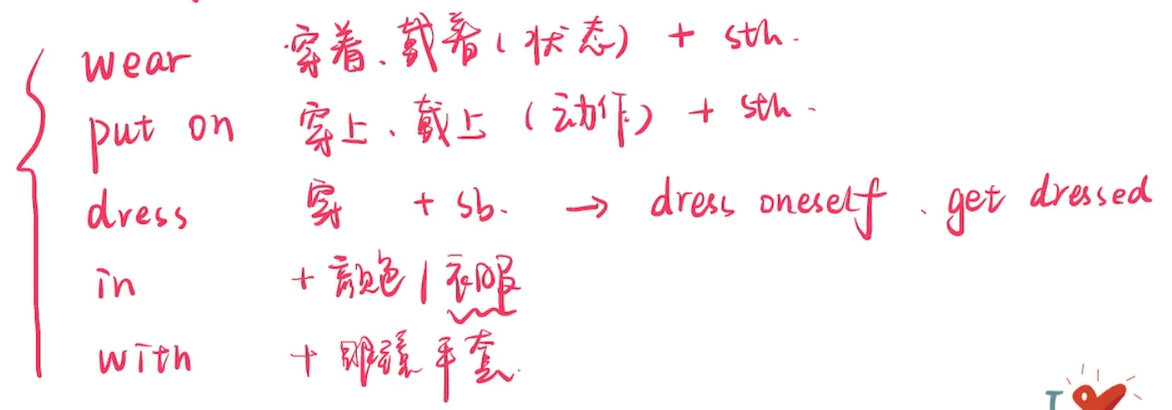 wear 穿着、戴着(状态) + sth.
put on 穿上、戴上(动作) + sth.
dress 穿 + sb. → dress oneself、get dressed
in + 颜色/衣服
with + 眼镜手套
I